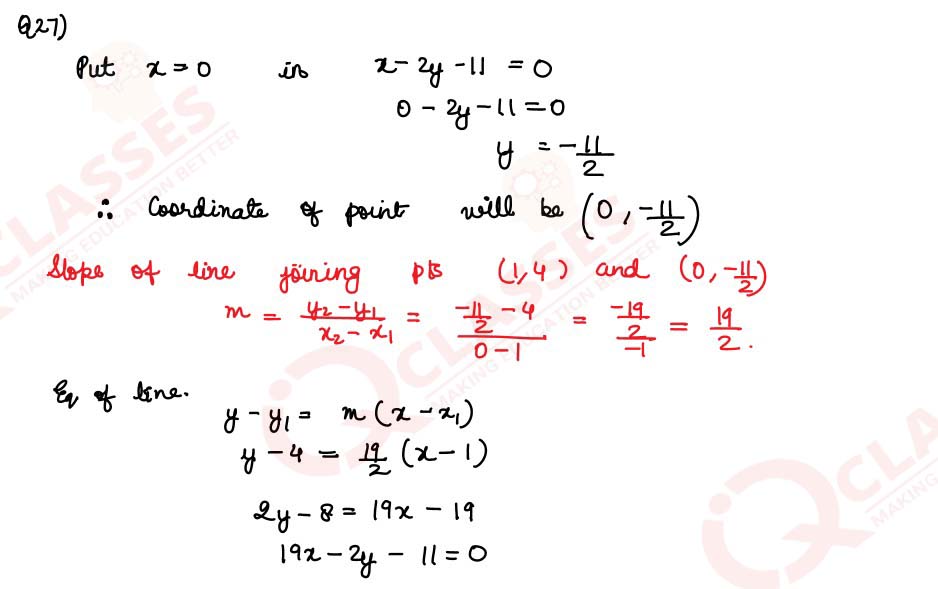 Q27)
Put x = 0 in x - 2y - 11 = 0
0 - 2y - 11 = 0
y = -11/2
∴ Coordinate of point will be (0, -11/2)
Slope of line joining pts (1,4) and (0, -11/2)
m = y₂-y₁/x₂-x₁ = -11/2 - 4/0-1 = -19/2/-1 = 19/2.
Eq of line.
y - y₁ = m (x - x₁)
y - 4 = 19/2 (x - 1)
2y - 8 = 19x - 19
19x - 2y - 11 = 0
CLASSES
MAKING EDUCATION BETTER
IQCLASSES
MAKING EDUCATION BETTER
IQCLA
MAKING